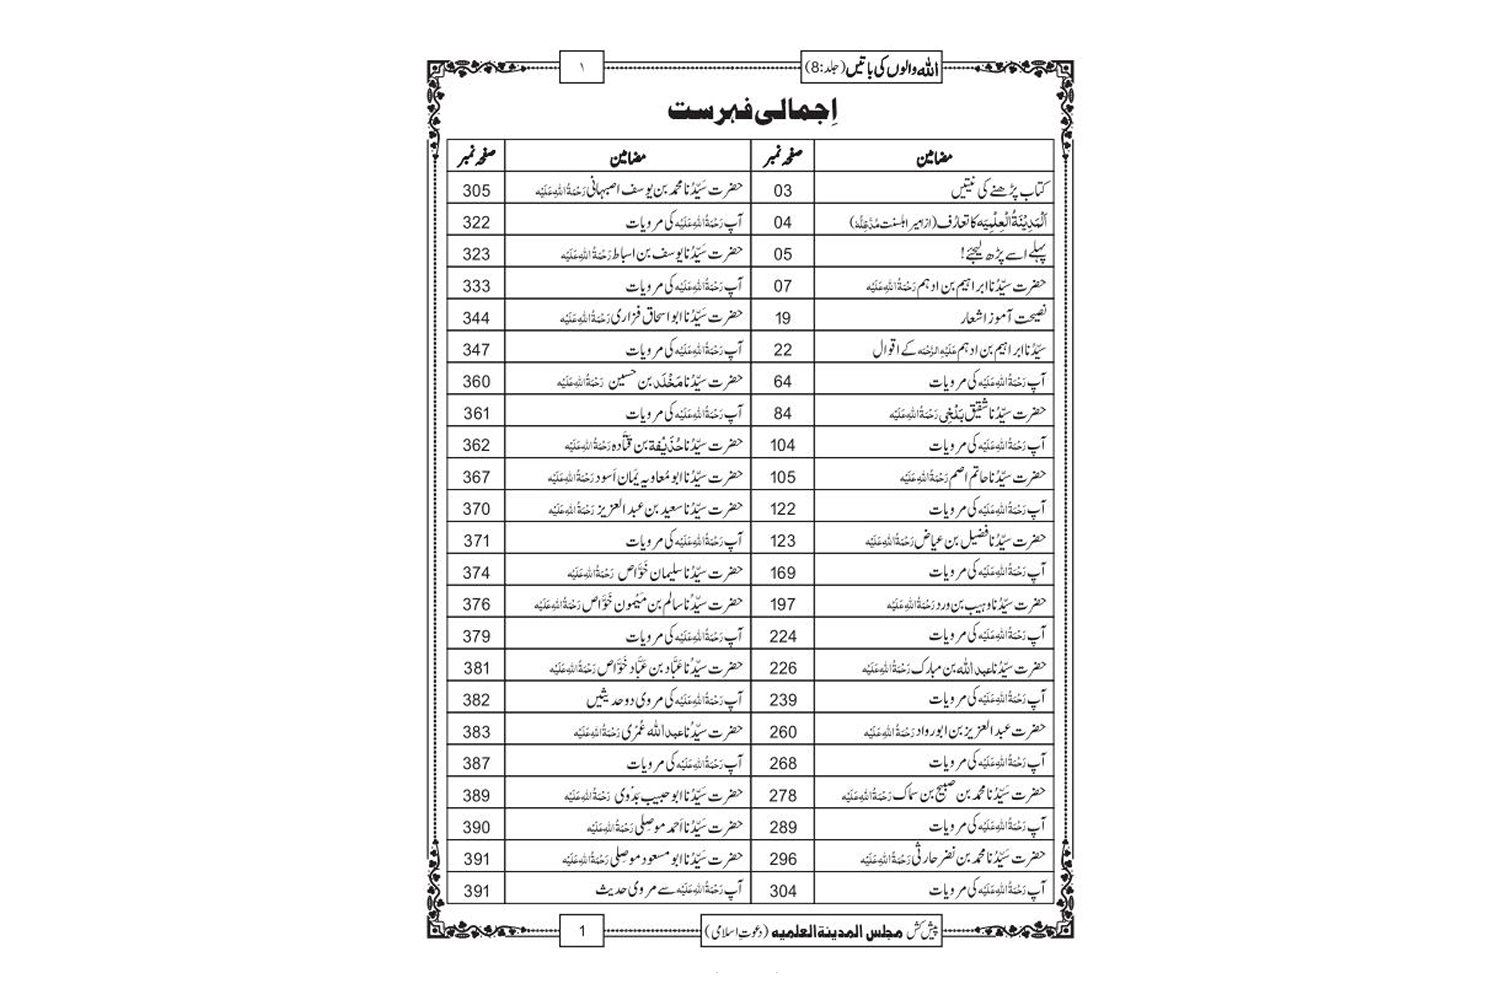 اللہ والوں کی باتیں (جلد:8)
۱
اِجمالی فہرست
مضامین صفحہ نمبر مضامین صفحہ نمبر
کتاب پڑھنے کی نیتیں 03 حضرت سَیِّدُنا محمد بن یوسف اصبہانی رَحْمَۃُ اللہِ عَلَیْہ 305
اَلْمَدِیْنَۃُ الْعِلْمِیَہ کا تعارُف (از امیر اہلسنت مُدَّظِلُّہُ) 04 آپ رَحْمَۃُ اللہِ عَلَیْہ کی مرویات 322
پہلے اسے پڑھ لیجئے! 05 حضرت سَیِّدُنا یوسف بن اسباط رَحْمَۃُ اللہِ عَلَیْہ 323
حضرت سیِّدُنا ابراہیم بن ادہم رَحْمَۃُ اللہِ عَلَیْہ 07 آپ رَحْمَۃُ اللہِ عَلَیْہ کی مرویات 333
نصیحت آموز اشعار 19 حضرت سَیِّدُنا ابو اسحاق فزاری رَحْمَۃُ اللہِ عَلَیْہ 344
سیِّدُنا ابراہیم بن ادہم عَلَیْہِ الرَّحْمَہ کے اقوال 22 آپ رَحْمَۃُ اللہِ عَلَیْہ کی مرویات 347
آپ رَحْمَۃُ اللہِ عَلَیْہ کی مرویات 64 حضرت سیِّدُنا مَخْلَد بن حسین رَحْمَۃُ اللہِ عَلَیْہ 360
حضرت سیِّدُنا شقیق بَلْخِی رَحْمَۃُ اللہِ عَلَیْہ 84 آپ رَحْمَۃُ اللہِ عَلَیْہ کی مرویات 361
آپ رَحْمَۃُ اللہِ عَلَیْہ کی مرویات 104 حضرت سیِّدُنا حُذَیْفَۃ بن قتادہ رَحْمَۃُ اللہِ عَلَیْہ 362
حضرت سیِّدُنا حاتم اصم رَحْمَۃُ اللہِ عَلَیْہ 105 حضرت سَیِّدُنا ابو مُعاویہ یَمان اَسود رَحْمَۃُ اللہِ عَلَیْہ 367
آپ رَحْمَۃُ اللہِ عَلَیْہ کی مرویات 122 حضرت سیِّدُنا سعید بن عبد العزیز رَحْمَۃُ اللہِ عَلَیْہ 370
حضرت سیِّدُنا فضیل بن عیاض رَحْمَۃُ اللہِ عَلَیْہ 123 آپ رَحْمَۃُ اللہِ عَلَیْہ کی مرویات 371
آپ رَحْمَۃُ اللہِ عَلَیْہ کی مرویات 169 حضرت سیِّدُنا سلیمان خَوَّاص رَحْمَۃُ اللہِ عَلَیْہ 374
حضرت سیِّدُنا وہیب بن ورد رَحْمَۃُ اللہِ عَلَیْہ 197 حضرت سیِّدُنا سالم بن مَیْمُون خَوَّاص رَحْمَۃُ اللہِ عَلَیْہ 376
آپ رَحْمَۃُ اللہِ عَلَیْہ کی مرویات 224 آپ رَحْمَۃُ اللہِ عَلَیْہ کی مرویات 379
حضرت سیِّدُنا عبد اللہ بن مبارک رَحْمَۃُ اللہِ عَلَیْہ 226 حضرت سیِّدُنا عَبَّاد بن عَبَّاد خَوَّاص رَحْمَۃُ اللہِ عَلَیْہ 381
آپ رَحْمَۃُ اللہِ عَلَیْہ کی مرویات 239 آپ رَحْمَۃُ اللہِ عَلَیْہ کی مروی دو حدیثیں 382
حضرت عبد العزیز بن ابو رواد رَحْمَۃُ اللہِ عَلَیْہ 260 حضرت سیِّدُنا عبد اللہ عُمَری رَحْمَۃُ اللہِ عَلَیْہ 383
آپ رَحْمَۃُ اللہِ عَلَیْہ کی مرویات 268 آپ رَحْمَۃُ اللہِ عَلَیْہ کی مرویات 387
حضرت سَیِّدُنا محمد بن صبیح بن سماک رَحْمَۃُ اللہِ عَلَیْہ 278 حضرت سَیِّدُنا ابو حبیب بَدَوِی رَحْمَۃُ اللہِ عَلَیْہ 389
آپ رَحْمَۃُ اللہِ عَلَیْہ کی مرویات 289 حضرت سیِّدُنا اَحمد موصِلی رَحْمَۃُ اللہِ عَلَیْہ 390
حضرت سَیِّدُنا محمد بن نضر حارثی رَحْمَۃُ اللہِ عَلَیْہ 296 حضرت سَیِّدُنا ابو مسعود موصِلی رَحْمَۃُ اللہِ عَلَیْہ 391
آپ رَحْمَۃُ اللہِ عَلَیْہ کی مرویات 304 آپ رَحْمَۃُ اللہِ عَلَیْہ سے مروی حدیث 391
پیش کش مجلس المدینۃ العلمیہ (دعوتِ اسلامی)
1